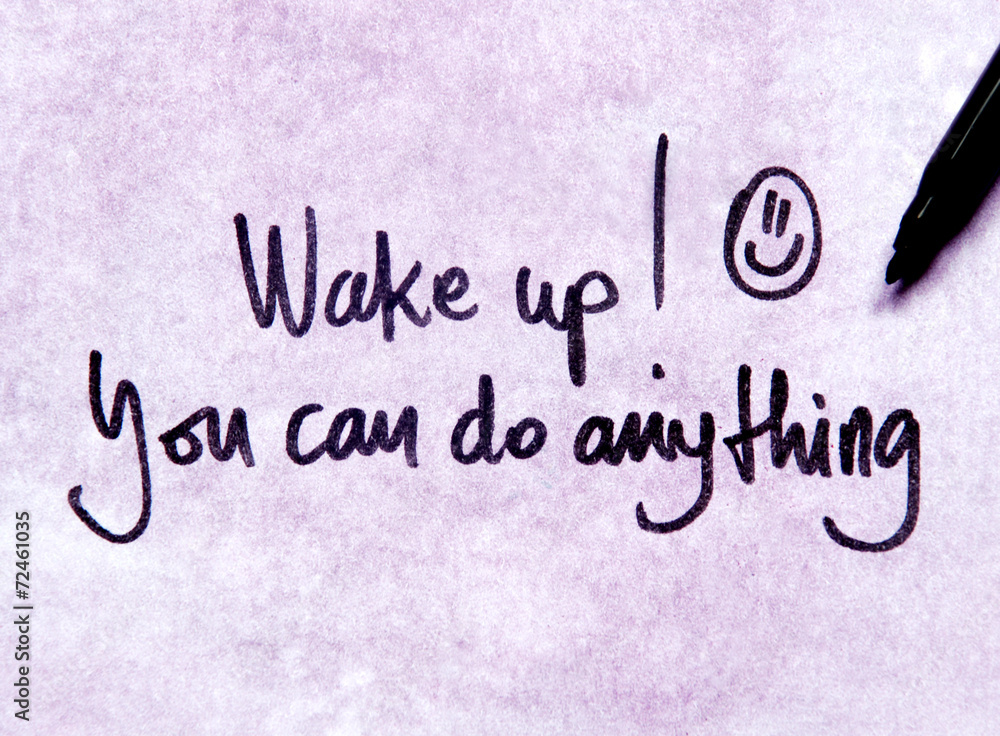 Wake up!
You can do anything
Adobe Stock | #72461035